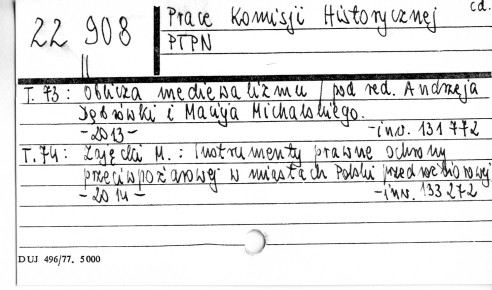 cd.
22 908
Prace Komisji Historycznej
PTPN
II
T. 73: Oblicza mediewalizmu / pod red. Andrzeja
Dąbrówki i Macieja Michalskiego.
- 2013 - - inw. 131 772
T. 74: Zajęcki M.: Instrumenty prawne ochrony
przeciwpożarowej w miastach Polski przedrozbiorowej
- 2014 - - inw. 133 272
DUJ 496/77. 5000